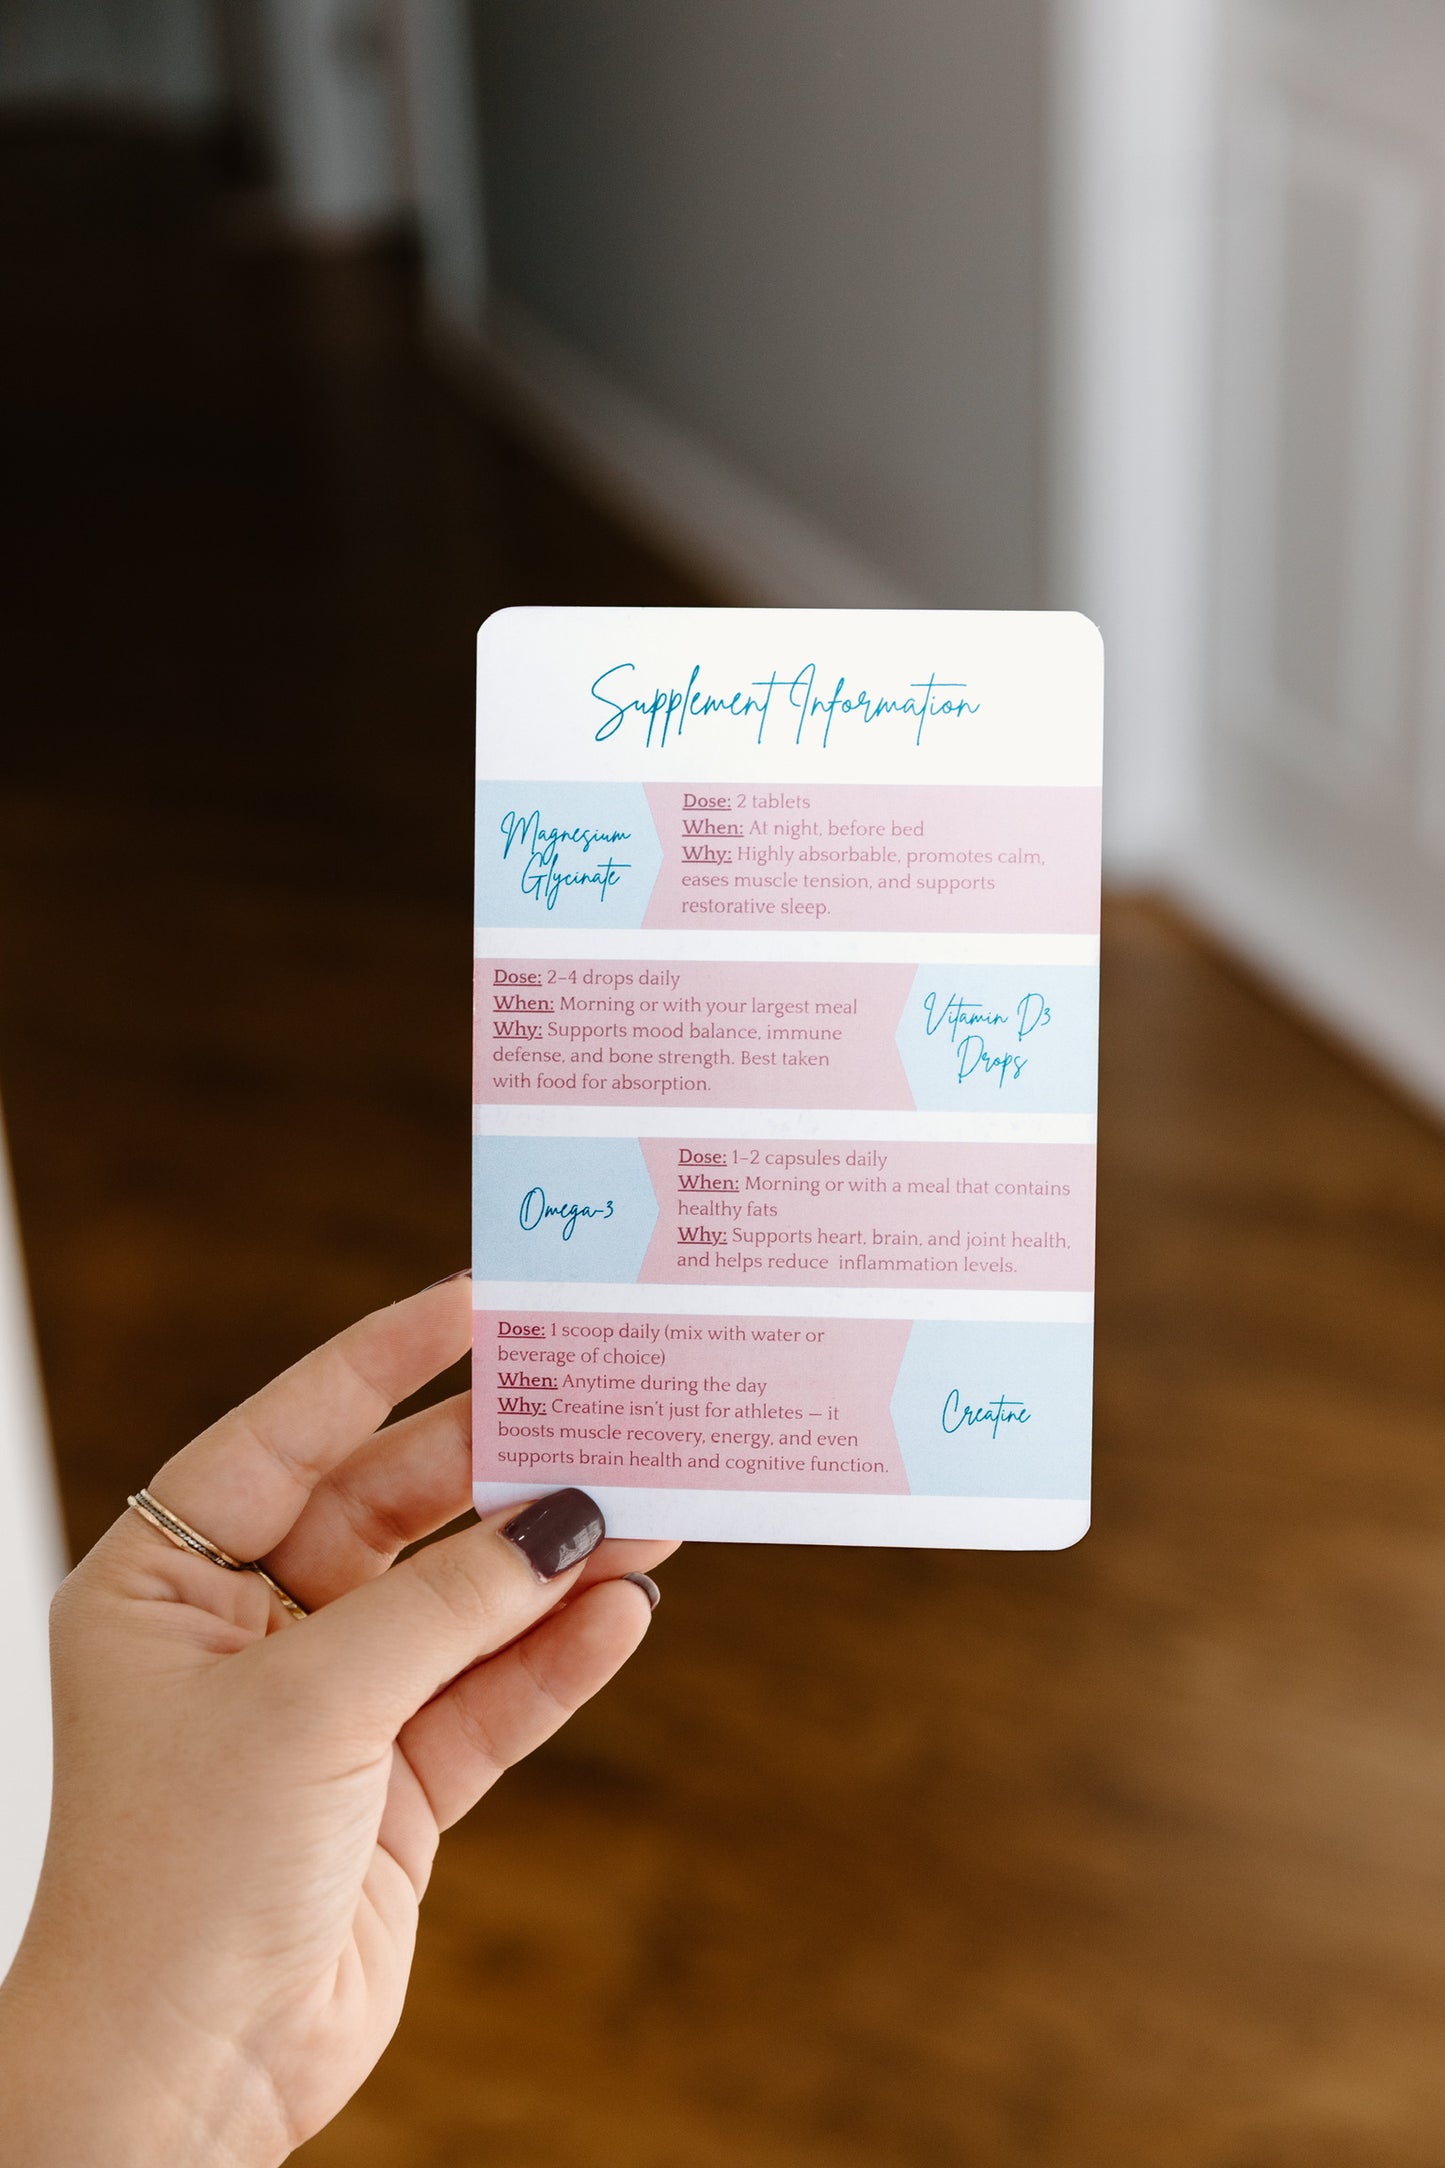 Supplement Information
Magnesium
Glycinate
Dose: 2 tablets
When: At night, before bed
Why: Highly absorbable, promotes calm,
eases muscle tension, and supports
restorative sleep.
Dose: 2–4 drops daily
When: Morning or with your largest meal
Why: Supports mood balance, immune
defense, and bone strength. Best taken
with food for absorption.
Vitamin D3
Drops
Omega-3
Dose: 1–2 capsules daily
When: Morning or with a meal that contains
healthy fats
Why: Supports heart, brain, and joint health,
and helps reduce  inflammation levels.
Dose: 1 scoop daily (mix with water or
beverage of choice)
When: Anytime during the day
Why: Creatine isn't just for athletes — it
boosts muscle recovery, energy, and even
supports brain health and cognitive function.
Creatine